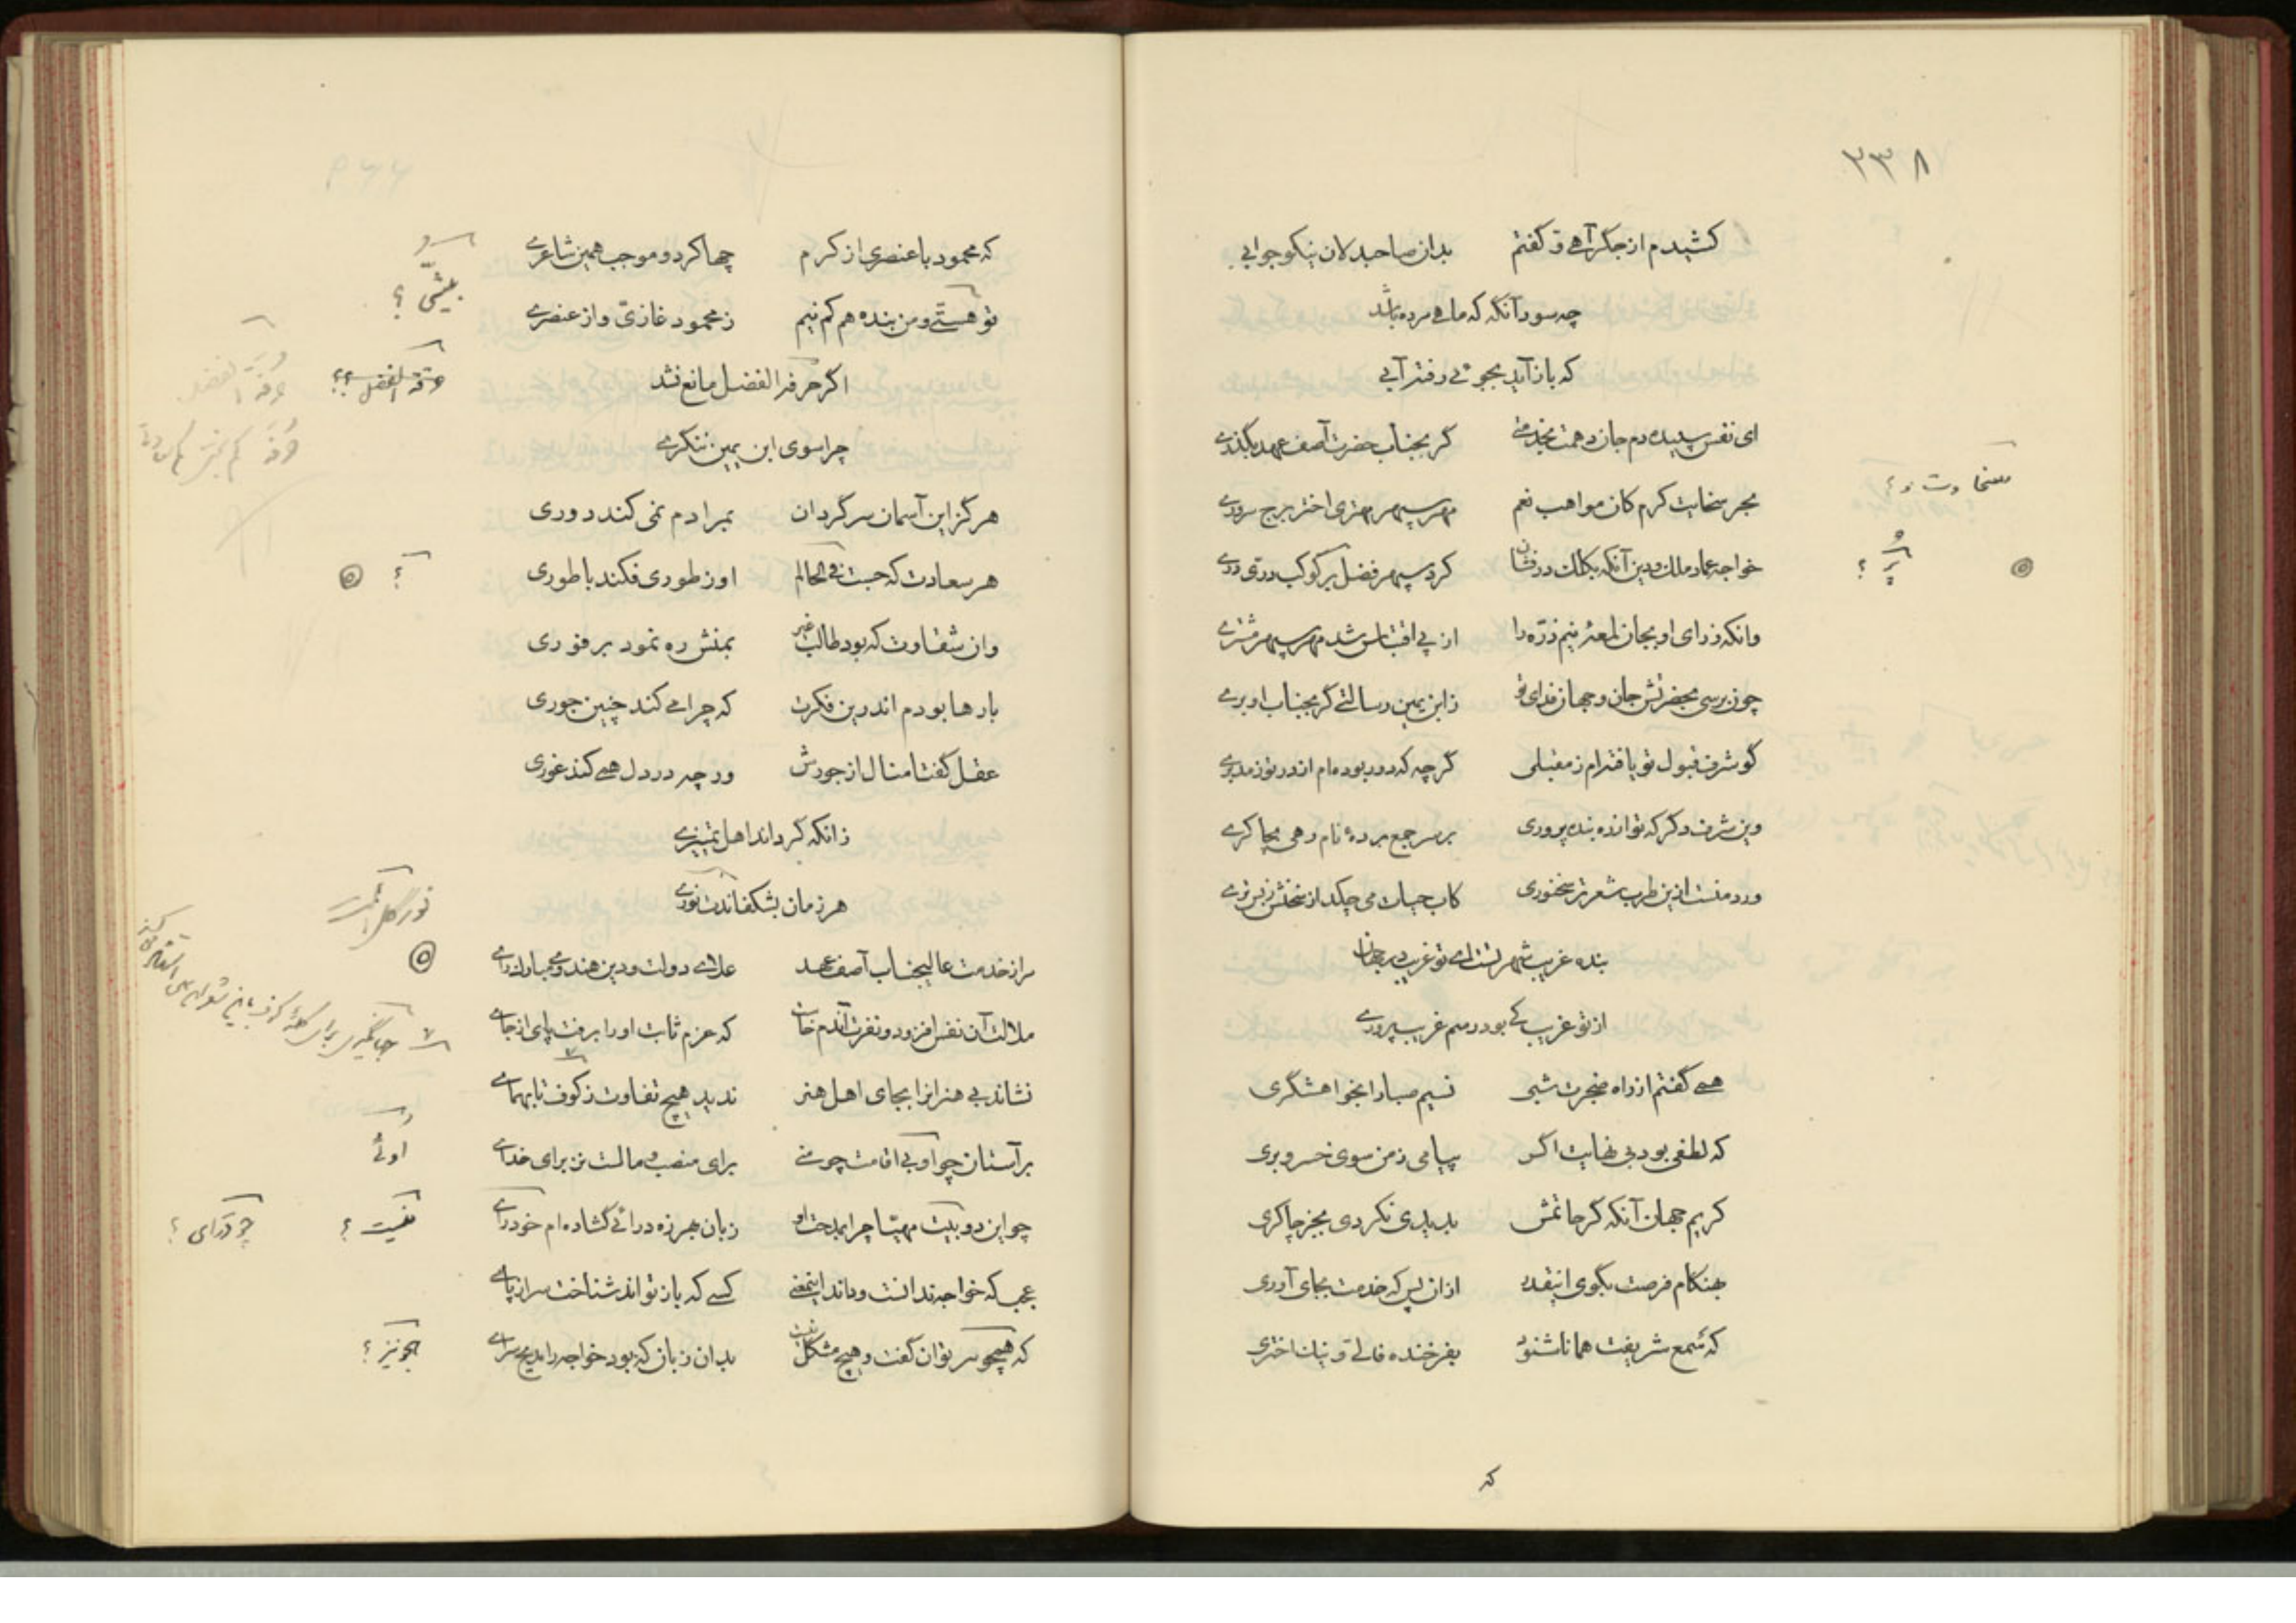 ۲۳۸
کشیدم از جگر آهی و گفتم بدان صاحبدلان نیکو جوابی
چه سود آنگه که ماهی مرده باشد
که باز آید بجوی رفته آبی
ای نفس سپیده دم جان دهمت بخدمتی گر بجناب حضرت آصف عهد بگذری
بحر سخات کرم کان مواهب نعم مهر سپهر مهتری اختر برج سروری
خواجه عماد ملک و دین آنکه بکلک درفشان کرد سپهر فضل پر کوکب دری دری
وانکه ز رای او بجان لمعه نیم ذره را از پی اقتباس شد مهر سپهر مشتری
چون برسی بحضرتش جان و جهان فدای تو ز ابن یمین رسالتی گر بجناب او بری
گو شرف قبول تو یافته‌ام ز مقبلی گرچه که دور بوده‌ام از در تو ز مدبری
وین شرف دگر که تو از ره بنده پروری بر سر جمع برده نام رهی بچاکری
ورد منست ازین طرب شعر تر سخنوری کاب حیات می چکد از سخنش ز بس تری
بنده غریب شهر تست ای تو غریب در جهان
از تو غریب کی بود رسم غریب پروری
همی گفتم از راه ضجرت شبی نسیم صبا را بخواهشگری
که لطفی بود بی نهایت اگر پیامی ز من سوی خسرو بری
کریم جهان آنکه گر حاتمش بدیدی نکردی بجز چاکری
بهنگام فرصت بگوی اینقدر ازان پس که خدمت بجای آوری
که سمع شریفت همانا شنود بفرخنده فالی و نیک اختری
که
که محمود با عنصری از کرم چها کرد و موجب همین شاعری
تو هستی و من بنده هم کم نیم ز محمود غازی و از عنصری
اگر حرفة الفضل مانع نشد
چرا سوی ابن یمین ننگری
هرگز این آسمان سرگردان بمرادم نمی کند دوری
هر سعادت که جست فی الحالم او ز طوری فکند با طوری
وان شقاوت که بود طالب غیر بمنش ره نمود بر فوری
بارها بودم اندرین فکرت که چرا می کند چنین جوری
عقل گفتا منال از جورش ور چه در دل همی کند غوری
زانکه گرداند اهل تمییزی
هر زمان بشکفاندت نوری
مرا ز خدمت عالیجناب آصف عهد علای دولت و دین هندوی مبارک رای
ملالت آن نفس افزود و نفرت آندم خاست که عزم ثابت او را برفت پای از جای
نشاند بی هنرانرا بجای اهل هنر ندید هیچ تفاوت ز کوف تا بهمای
بر آستان چو اوئی اقامت چو منی برای منصب و مالست نز برای خدای
چو این دو نیست مهیا چرا بمدحت او زبان هرزه درائی گشاده‌ام چو درای
عجب که خواجه ندانست و ماند اینمعنی کسی که باز تواند شناخت سر از پای
که هجو نیز توان گفت و هیچ مشکل نیست بدان زبان که بود خواجه را مدیح سرای
سخاوت و ؟
پر ؟
حرفة الفضل ؟؟
اوئی
نیست ؟
چو درای ؟
هجو نیز ؟